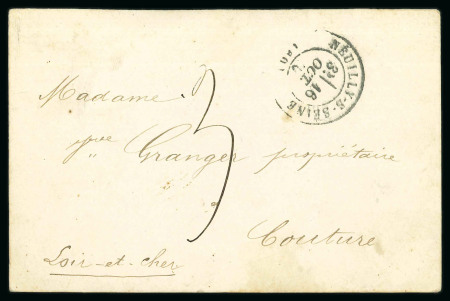 NEUILLY-S-SEINE
3E / 16
OCT
Madame
3
Vve Granger propriétaire
Couture
Loir-et-cher